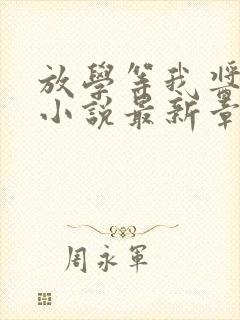 放學等我醬
小說最新章
周永軍